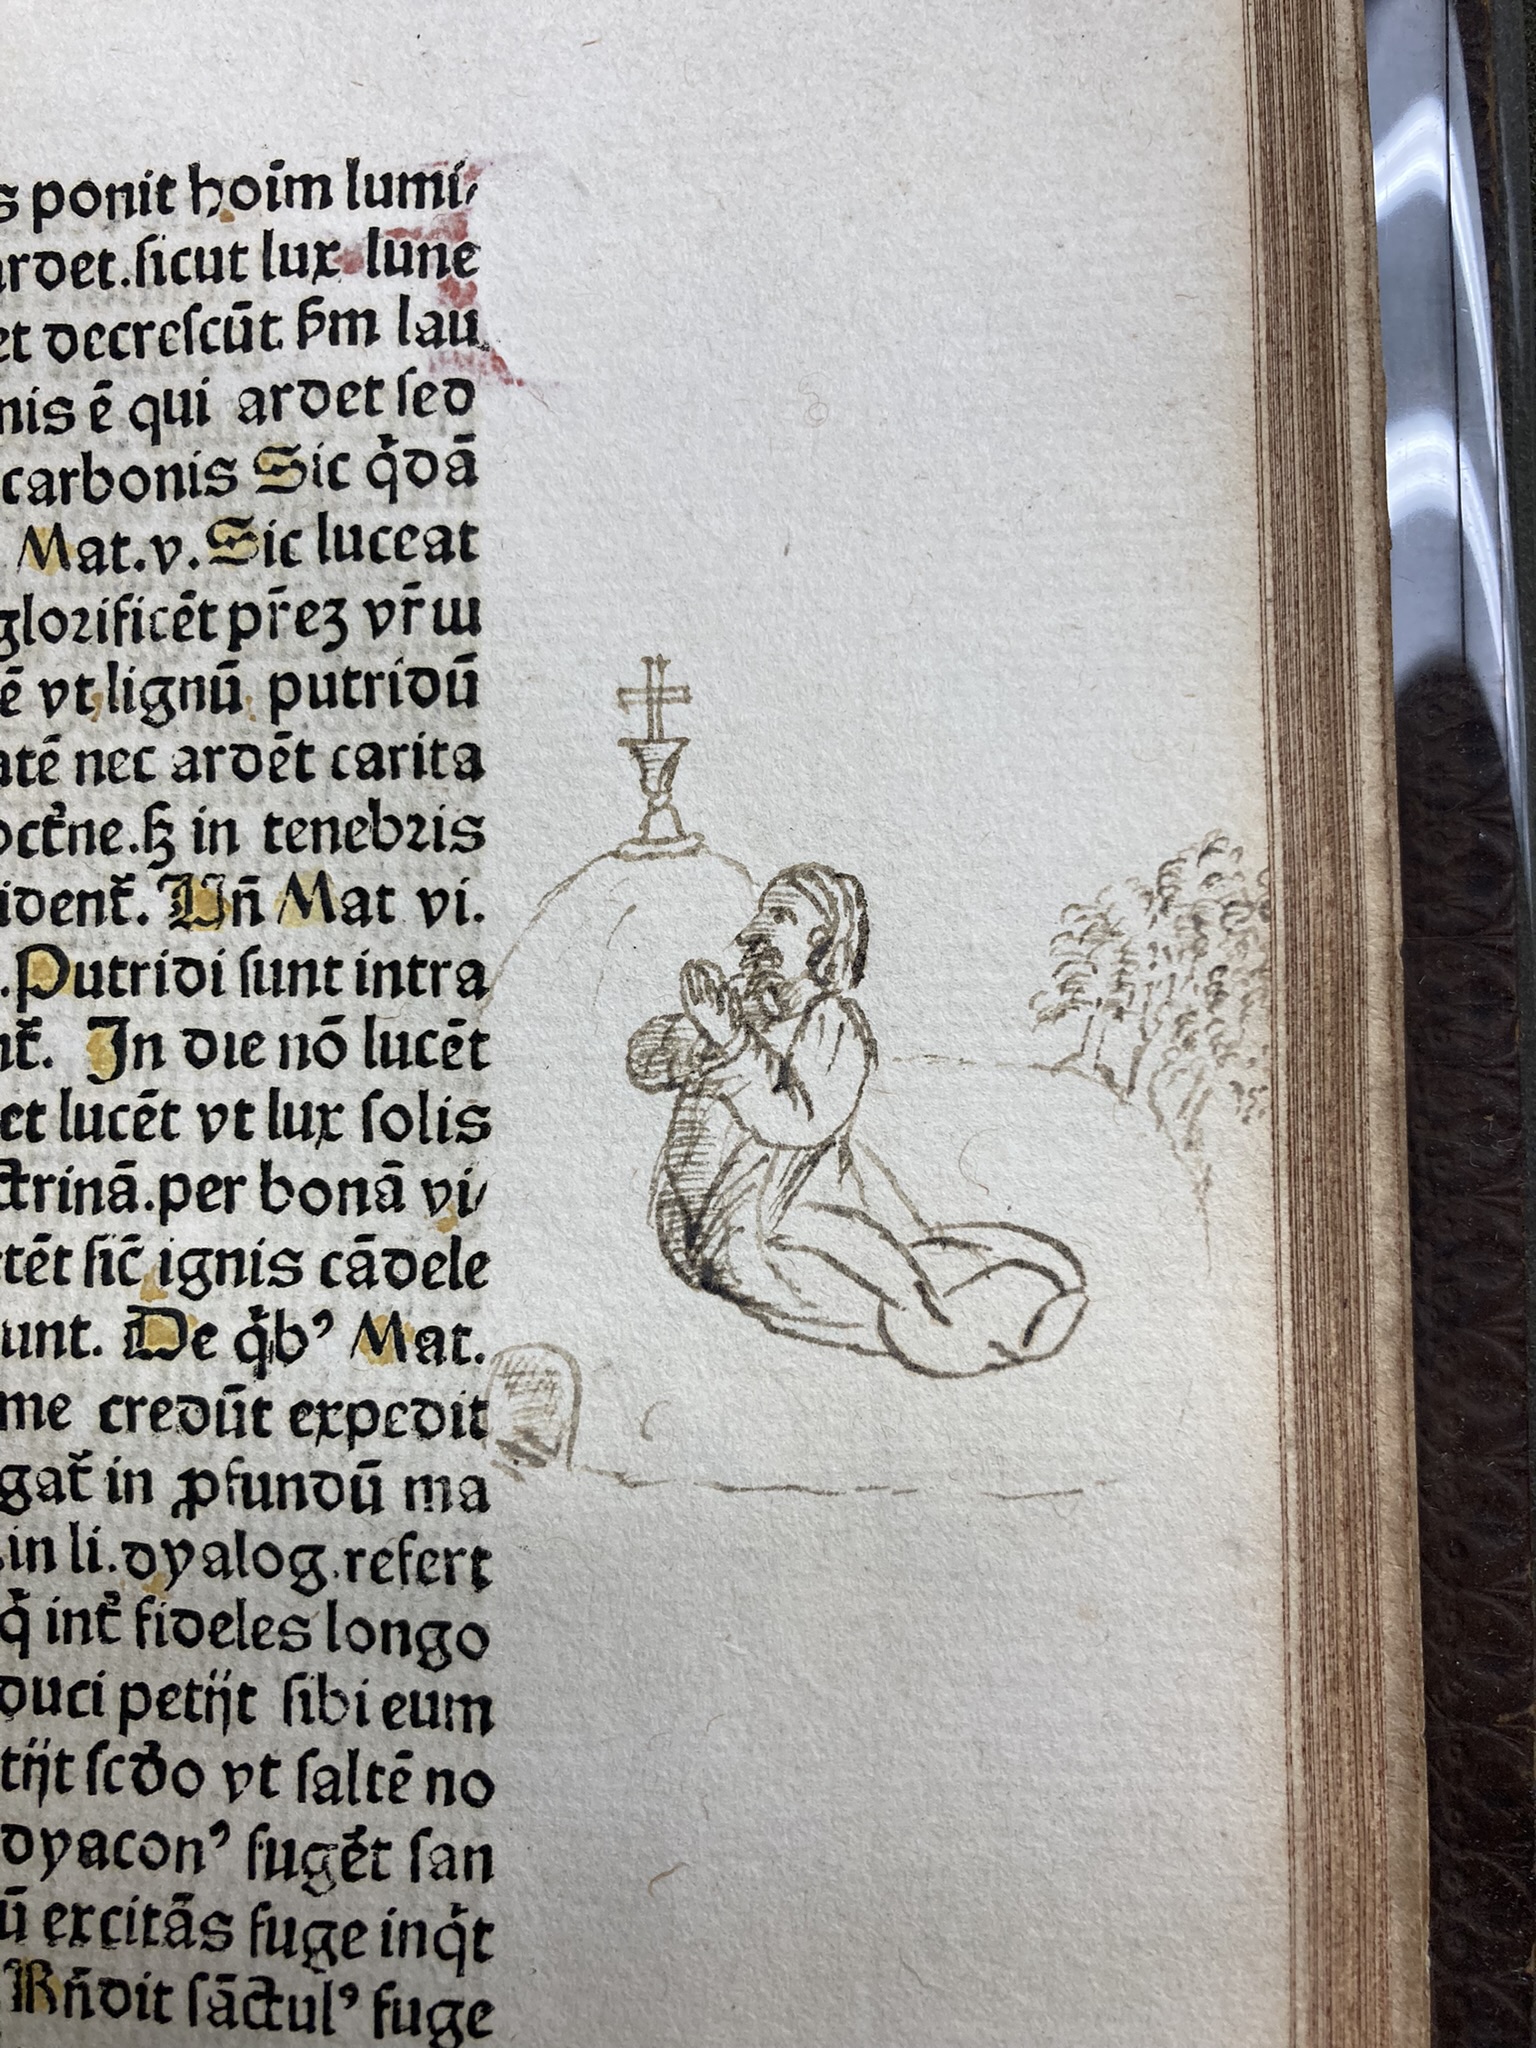 s ponit hoīm lumi⸗
ardet.ſicut lux lune
et decreſcūt ẜm lau
nis ē qui ardet ſed
carbonis Sic q̇dā
Mat.v. Sic luceat
gloꝛificēt pr̄eꝫ vr̄m
ē vt lignū putridū
atē nec ardēt carita
octrͥne.ſꝫ in tenebꝛis
ident᷑. Un̄ Mat vi.
.Putridi ſunt intra
nt᷑. In die nō lucēt
et lucēt vt lux ſolis
ctrinā.per bonā vi⸗
tēt ſic̄ ignis cādele
unt. De q̇bꝰ Mat.
me credūt expedit
gat᷑ in ꝓfundū ma
.in li.dyalog.refert
q̇ int᷑ fideles longo
duci petijt ſibi eum
tijt ſcḋo vt ſaltē no
dyaconꝰ fuget᷑ ſan
ū excitās fuge inq̇t
Rn̄dit ſāctulꝰ fuge